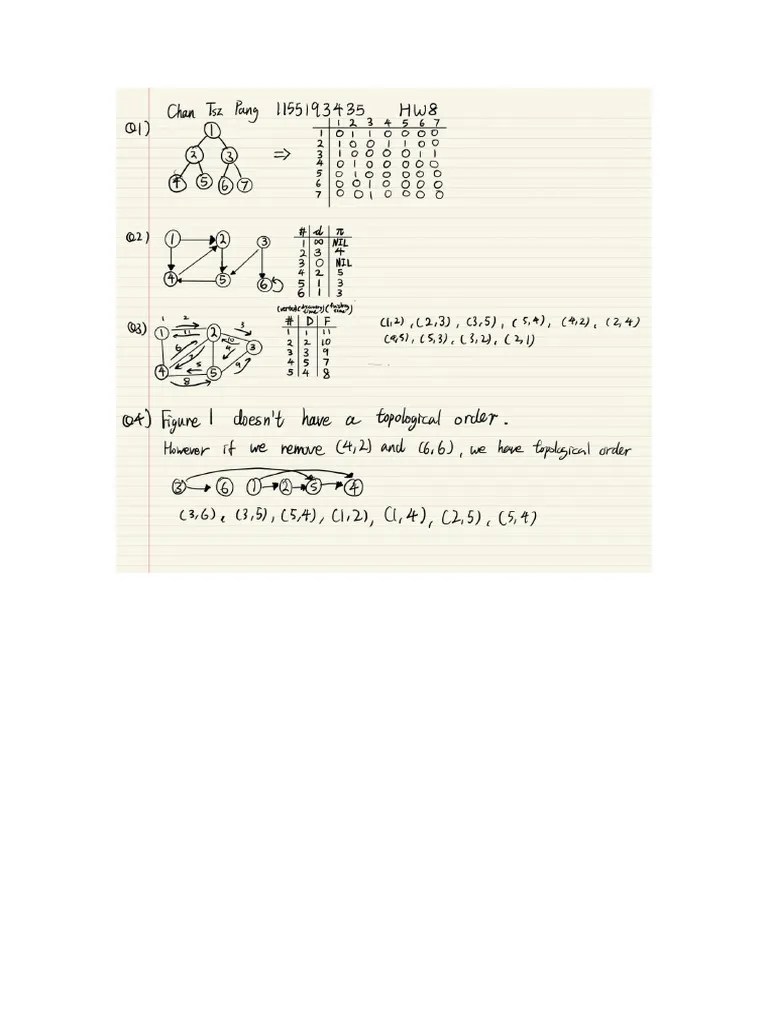 Chan Tsz Pang 1155193435 HW8
Q1)
1
2 3
4 5 6 7
⇒
1 2 3 4 5 6 7
1 0 1 1 0 0 0 0
2 1 0 0 1 1 0 0
3 1 0 0 0 0 1 1
4 0 1 0 0 0 0 0
5 0 1 0 0 0 0 0
6 0 0 1 0 0 0 0
7 0 0 1 0 0 0 0
Q2)
1 2 3
4 5 6
# d π
1 ∞ NIL
2 3 4
3 0 NIL
4 2 5
5 1 3
6 1 3
Q3)
1 2
1 11 2 3
6 7 10 4 3
4 5 5 9
8
(vertex) (discovery time) (finishing time)
# D F
1 1 11
2 2 10
3 3 9
4 5 7
5 4 8
(1,2), (2,3), (3,5), (5,4), (4,2), (2,4)
(4,5), (5,3), (3,2), (2,1)
Q4) Figure 1 doesn't have a topological order.
However if we remove (4,2) and (6,6), we have topological order
3 6 1 2 5 4
(3,6), (3,5), (5,4), (1,2), (1,4), (2,5), (5,4)